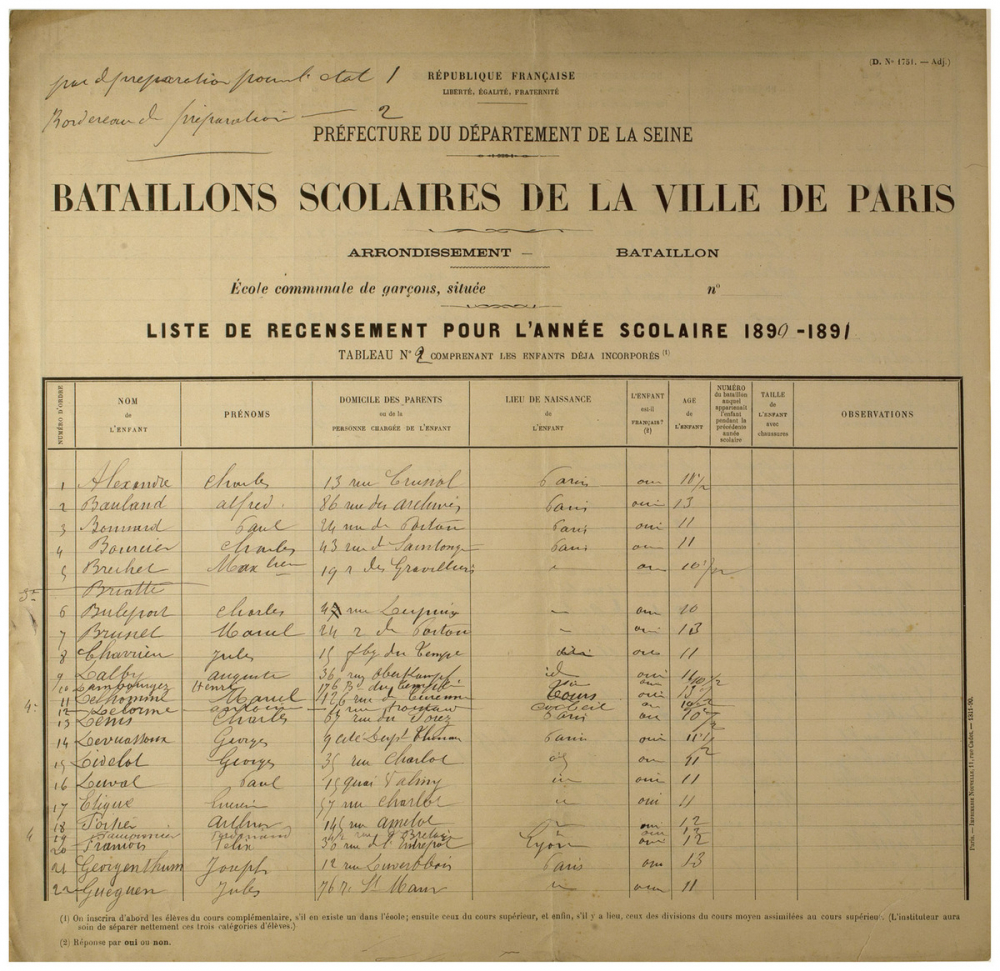 préparation pour l'état 1
Bordereau de préparation — 2
(D. Nº 1751. — Adj.)
RÉPUBLIQUE FRANÇAISE
LIBERTÉ, ÉGALITÉ, FRATERNITÉ
PRÉFECTURE DU DÉPARTEMENT DE LA SEINE
BATAILLONS SCOLAIRES DE LA VILLE DE PARIS
ARRONDISSEMENT – BATAILLON
École communale de garçons, située nº
LISTE DE RECENSEMENT POUR L'ANNÉE SCOLAIRE 1890 -1891
TABLEAU Nº 2 COMPRENANT LES ENFANTS DÉJA INCORPORÉS (1)
NUMÉRO D'ORDRE
NOM de L'ENFANT
PRÉNOMS
DOMICILE DES PARENTS ou de la PERSONNE CHARGÉE DE L'ENFANT
LIEU DE NAISSANCE de L'ENFANT
L'ENFANT est-il FRANÇAIS? (2)
AGE de L'ENFANT
NUMÉRO du bataillon auquel appartenait l'enfant pendant la précédente année scolaire
TAILLE de L'ENFANT avec chaussures
OBSERVATIONS
1 Alexandre Charles 13 rue Crussol Paris oui 11 1/2
2 Bauland alfred 86 rue des archives Paris oui 13
3 Bonnard Paul 24 rue de Poitou Paris oui 11
4 Bourcier Charles 43 rue de Saintonge Paris oui 11
5 Brechet 19 r des Gravilliers oui 10 1/2
Briatte
6 Charles rue oui 10
7 Brunel Marcel 24 r de Poitou oui 13
8 Charrieu Jules 15 fbg du Temple oui 11
9 Lalby auguste 36 rue Oberkampf id oui
10 Henri 176 Bd du temple
11 Marcel 126 rue de Turenne Tours oui 13
12 Delorme Corbeil
13 Denis Charles 67 rue du Forez Paris oui
14 Georges Paris oui 11 1/2
15 Didelot Georges 35 rue Charlot oui 11
16 Duval Paul 15 quai Valmy oui 11
17 Etique 57 rue Charlot oui 11
18 Arthur 145 rue amelot oui 12
19 Ferdinand Bretagne oui 13
20 François Felix rue de l'Entrepôt Lyon oui 12
21 Georgenthum Joseph 12 rue Paris oui 13
22 Gueguen Jules 76 r. St Maur oui 11
(1) On inscrira d'abord les élèves du cours complémentaire, s'il en existe un dans l'école; ensuite ceux du cours supérieur, et enfin, s'il y a lieu, ceux des divisions du cours moyen assimilées au cours supérieur. (L'instituteur aura
soin de séparer nettement ces trois catégories d'élèves.)
(2) Réponse par oui ou non.
Paris. — IMPRIMERIE NOUVELLE, 11, rue Cadet. — 1351-90.